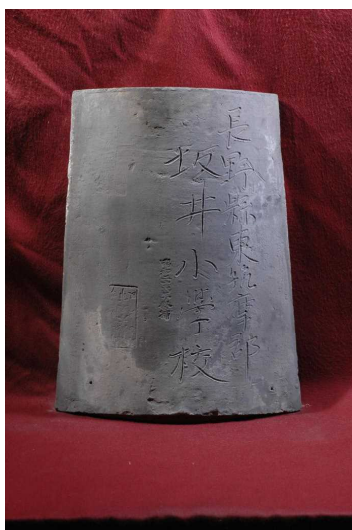 長野縣東筑摩郡
坂井小學校